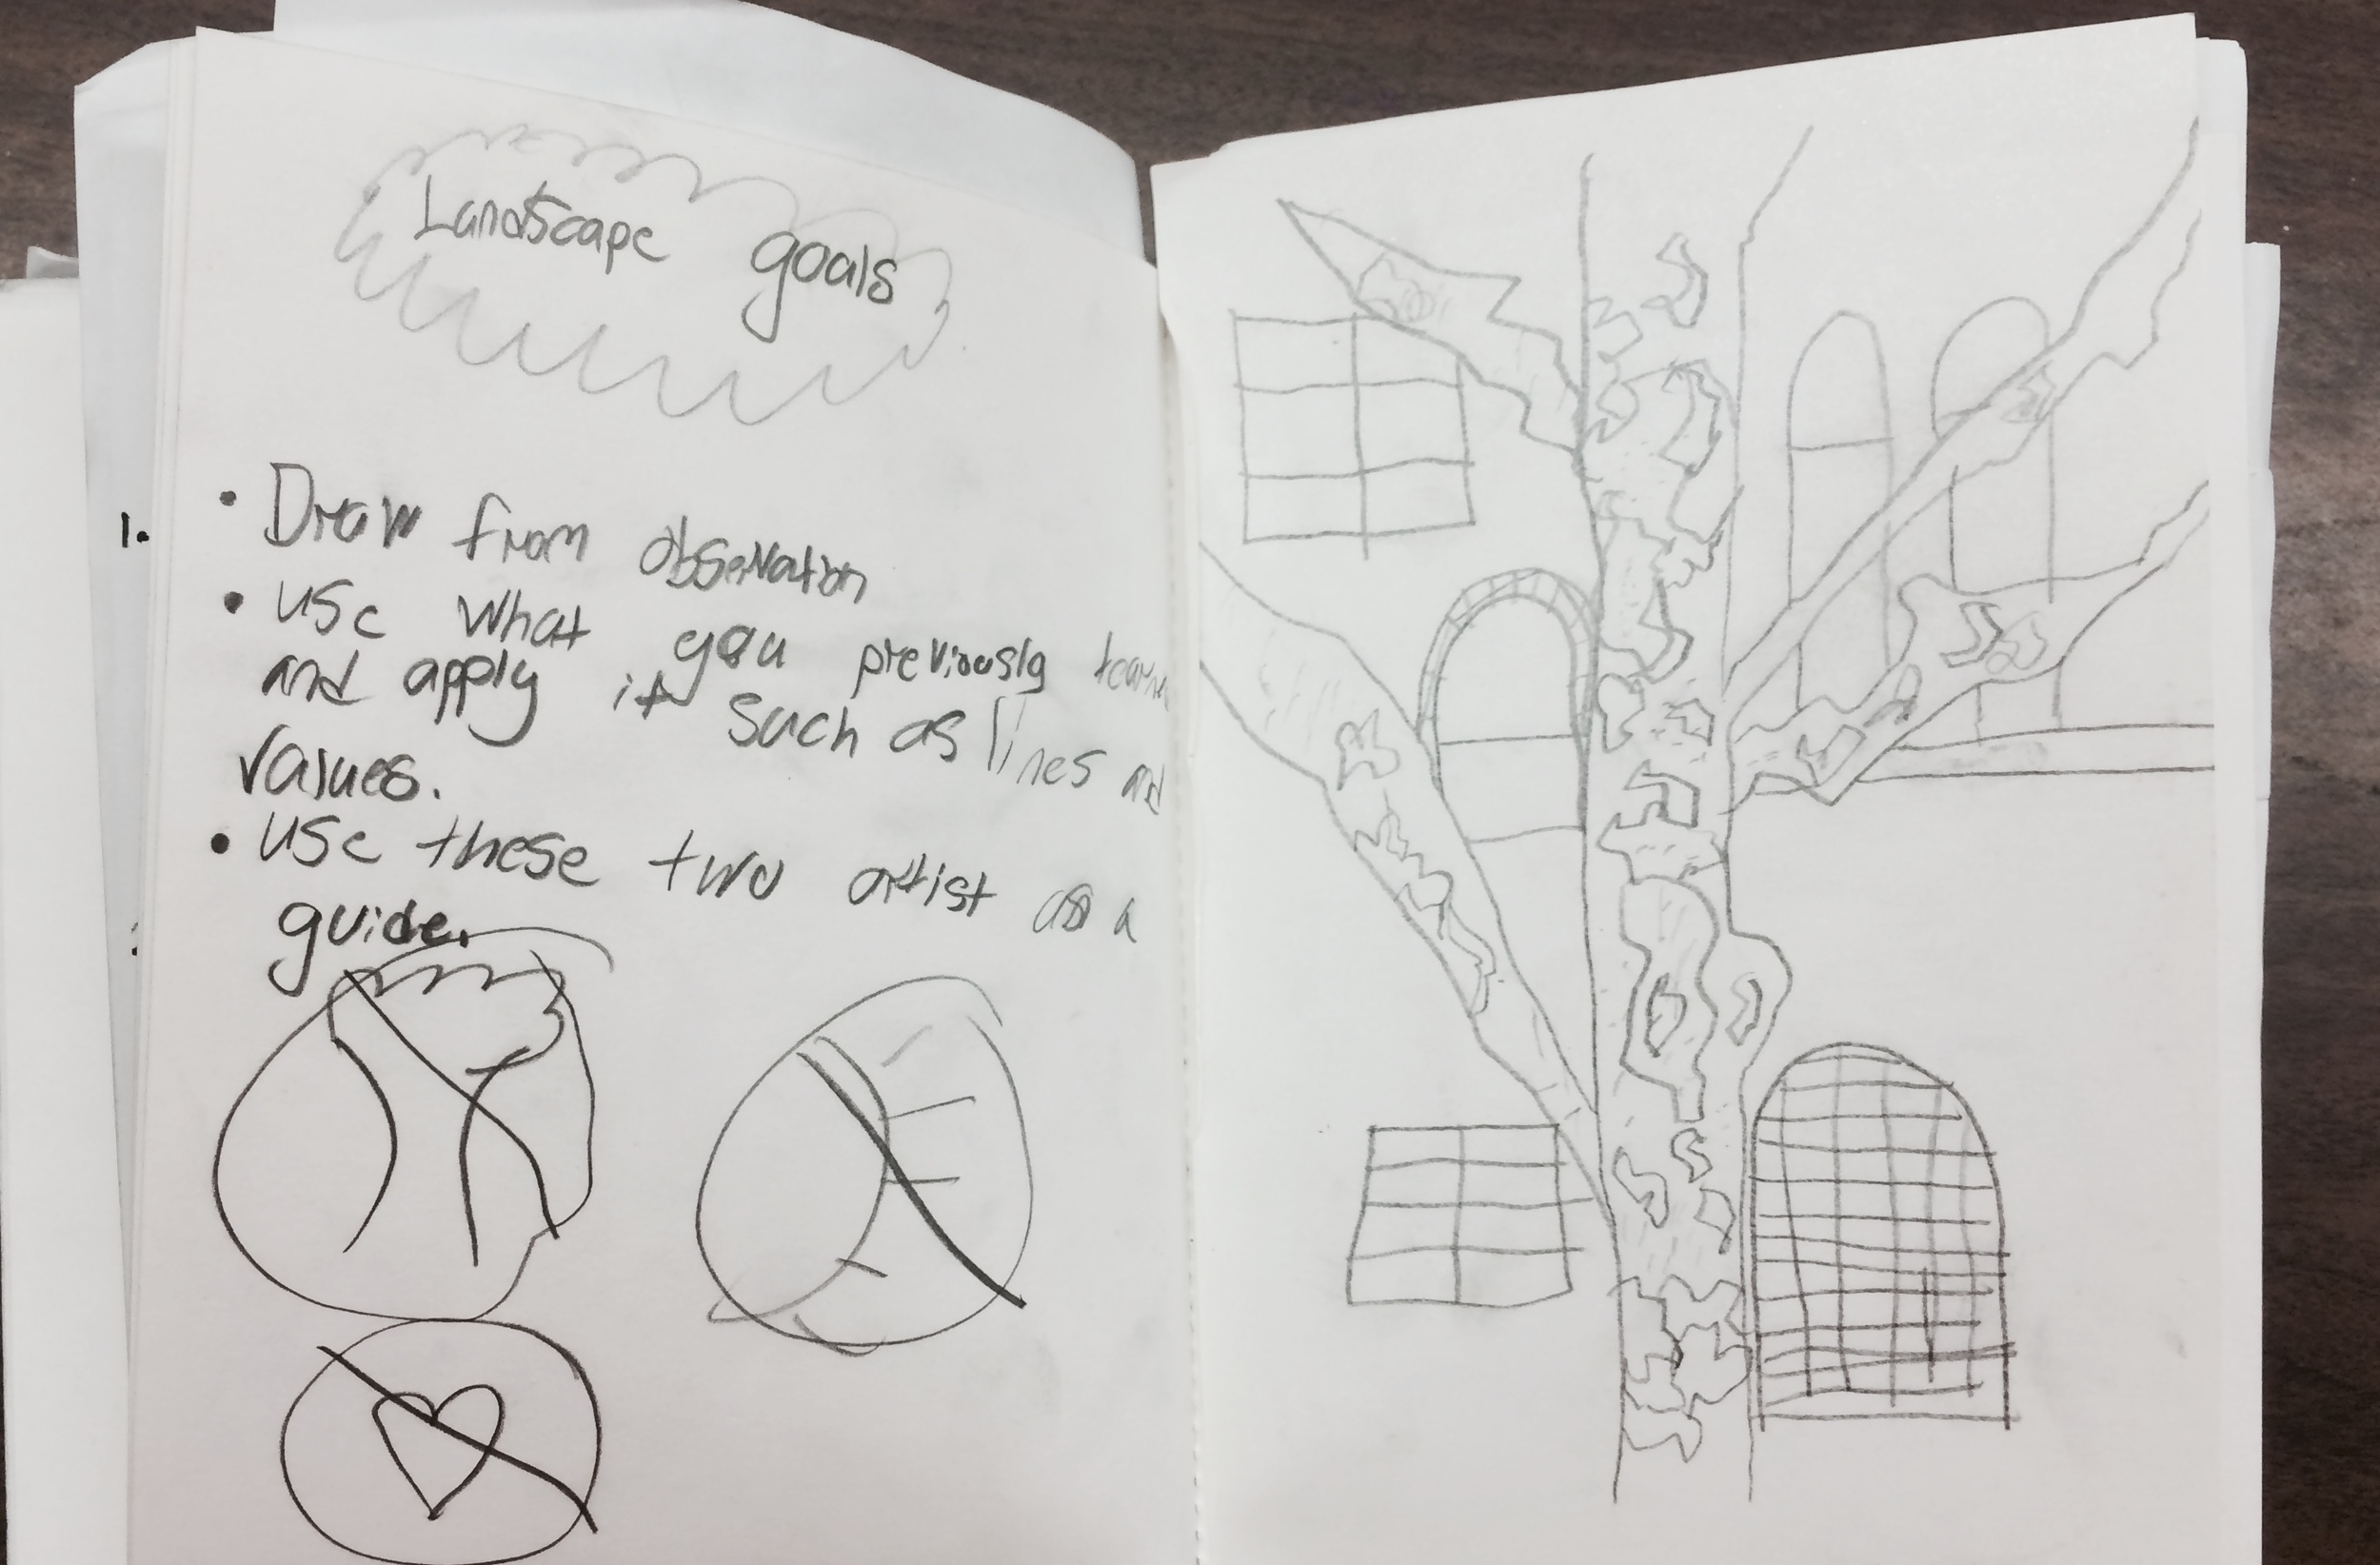 Landscape goals
1.
• Draw from observation
• use what you previously learn
and apply it such as lines and
values.
• use these two artist as a
guide.